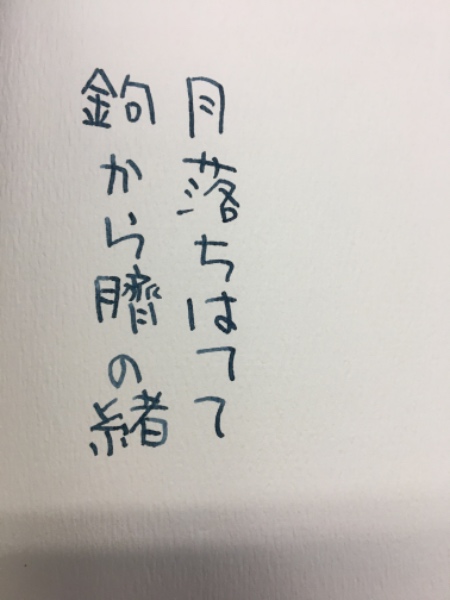 月落ちはてて
鉤から臍の緒